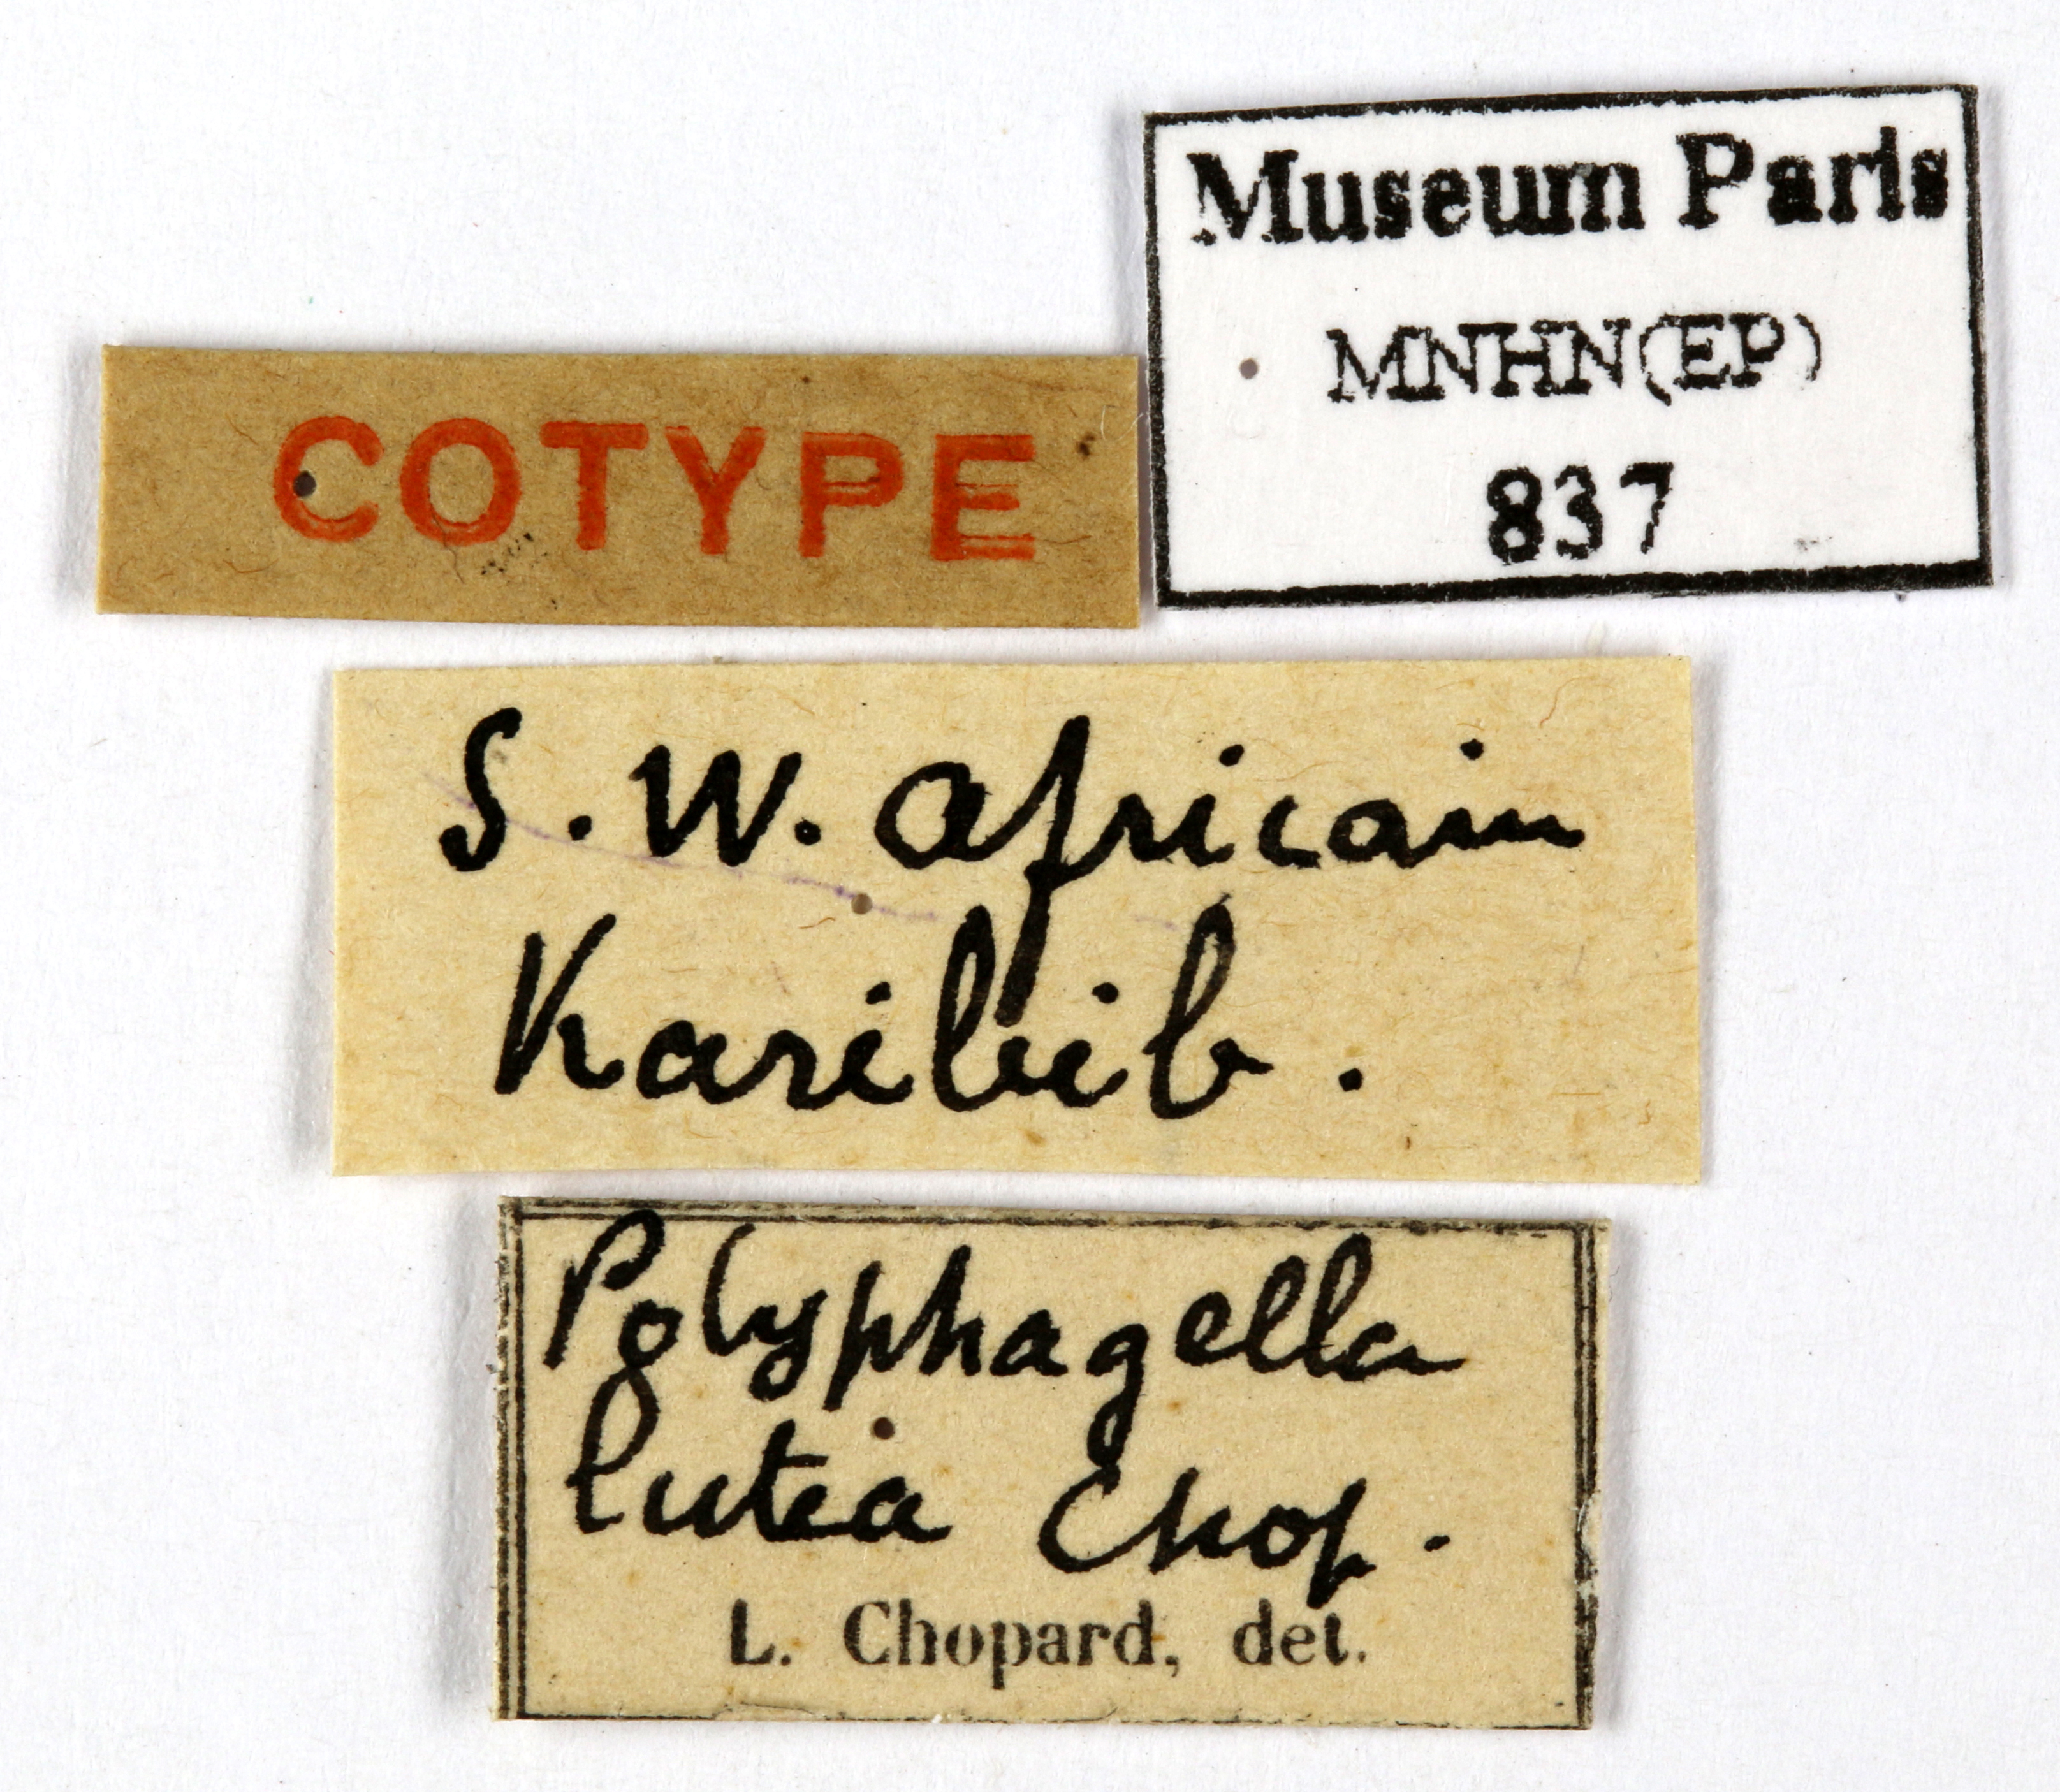 COTYPE
Museum Paris
MNHN(EP)
837
S. W. africain
Karibib.
Polyphagella
lutea Chop.
L. Chopard, det.